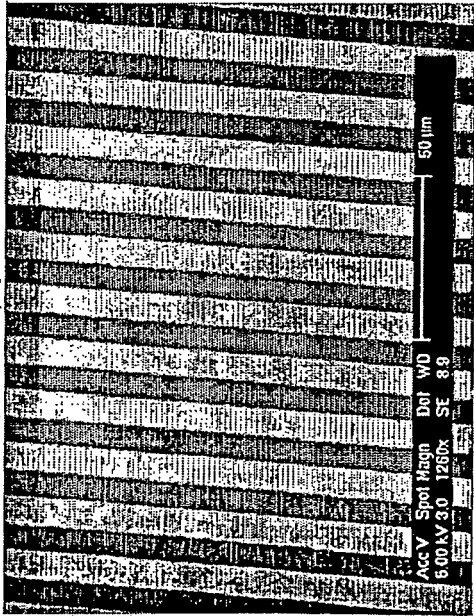 Acc V Spot Magn Det WD
6.00 kV 3.0 1260x SE 8.9
50 µm